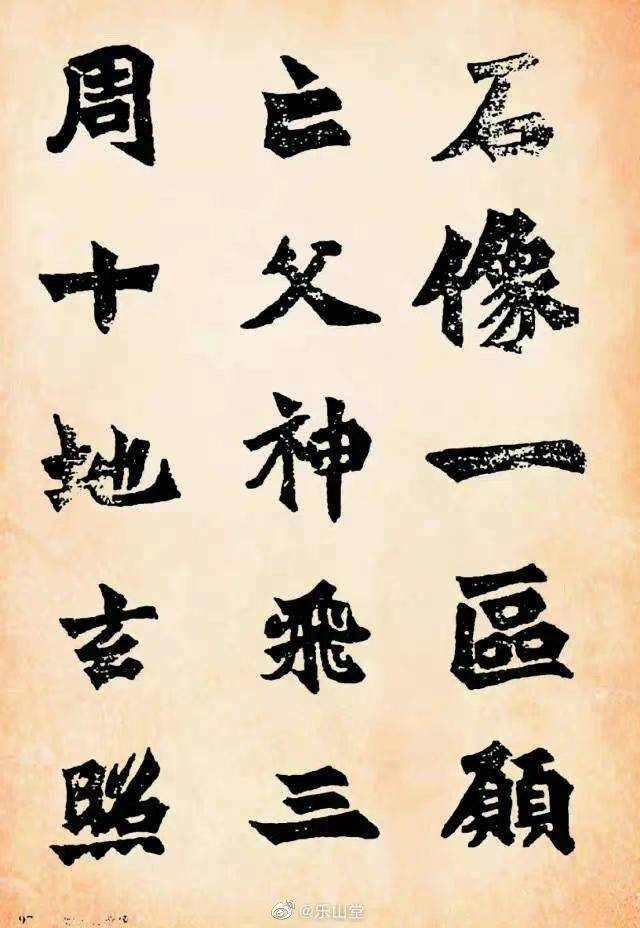 石像一區願
亡父神飛三
周十地玄照
@乐山堂